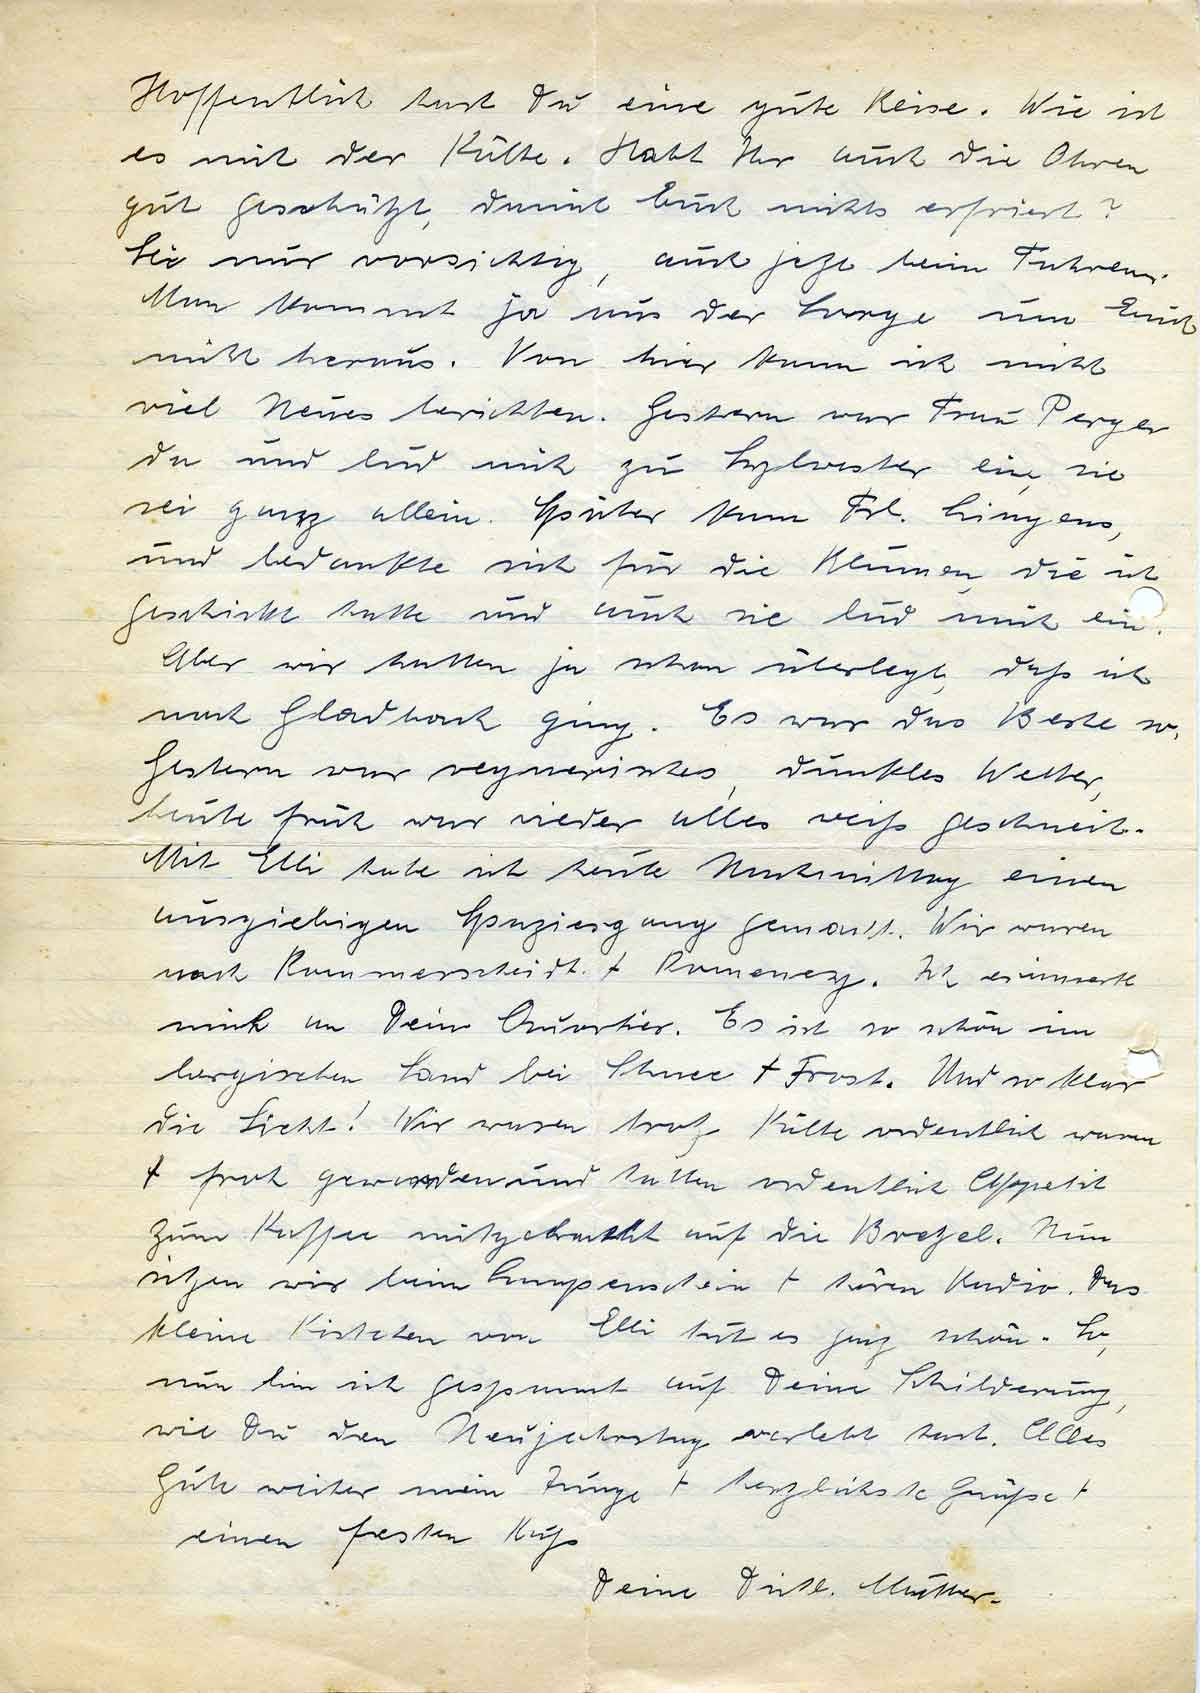 Hoffentlich hast Du eine gute Reise. Wie ist
es mit der Kälte. Habt Ihr auch die Ohren
gut geschützt, damit Euch nichts erfriert?
Sei nur vorsichtig, auch jetzt beim Fahren.
Man kommt ja aus der Sorge um Euch
nicht heraus. Von hier kann ich nicht
viel Neues berichten. Gestern war Frau Perger
da und lud mich zu Sylvester ein, sie
sei ganz allein. Später kam Frl. Lingens,
und bedankte sich für die Blumen, die ich
geschickt hatte und auch sie lud mich ein.
Aber wir hatten ja schon überlegt, daß ich
nach Gladbach ging. Es war das Beste so.
Gestern war regnerisches, dunkles Wetter,
heute früh war wieder alles weiß geschneit.
Mit Elli habe ich heute Nachmittag einen
ausgiebigen Spaziergang gemacht. Wir waren
nach Rommerscheidt + Romeney. Ich erinnerte
mich an Dein Quartier. Es ist so schön im
bergischen Land bei Schnee + Frost. Und so klar
die Sicht! Wir waren trotz Kälte ordentlich warm
+ froh geworden und hatten ordentlich Appetit
zum Kaffee mitgebracht auf die Brezel. Nun
sitzen wir beim Lampenschein + hören Radio. Das
kleine Kistchen von Elli tut es ganz schön. So,
nun bin ich gespannt auf Deine Schilderung,
wie Du den Neujahrstag verlebt hast. Alles
Gute weiter mein Junge + herzlichste Grüße +
einen festen Kuß
Deine Dichl. Mutter.